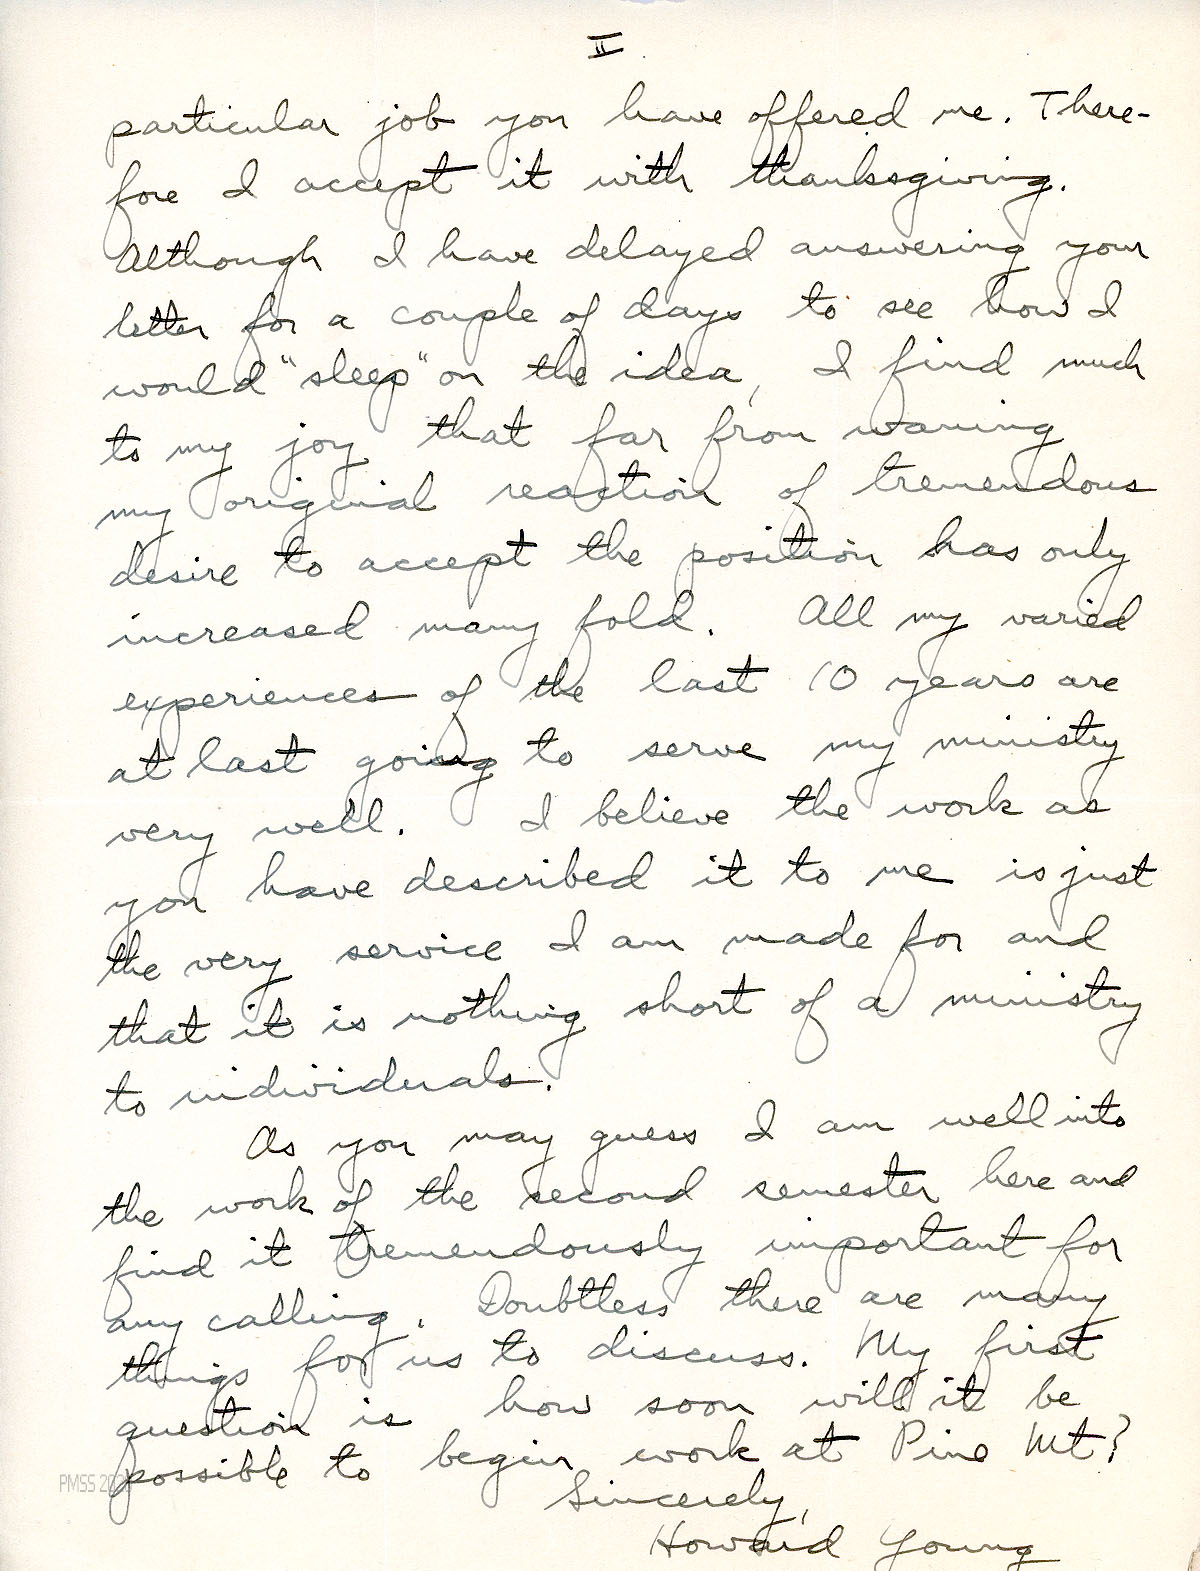 II
particular job you have offered me. There-
fore I accept it with thanksgiving.
Although I have delayed answering your
letter for a couple of days to see how I
would "sleep" on the idea, I find much
to my joy that far from waning
my original reaction of tremendous
desire to accept the position has only
increased many fold. All my varied
experiences of the last 10 years are
at last going to serve my ministry
very well. I believe the work as
you have described it to me is just
the very service I am made for and
that it is nothing short of a ministry
to individuals.
As you may guess I am well into
the work of the second semester here and
find it tremendously important for
any calling. Doubtless there are many
things for us to discuss. My first
question is how soon will it be
possible to begin work at Pine Mt?
PMSS
Sincerely,
Howard Young